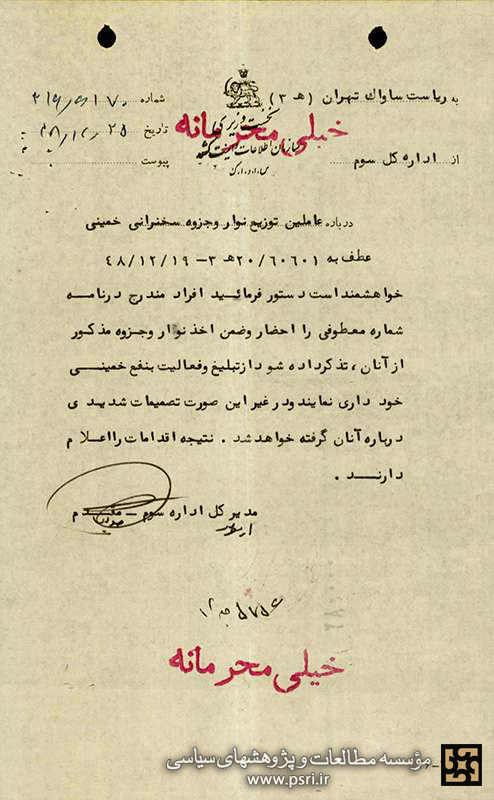 به ریاست ساواك تهران (هـ ۳)
از اداره کل سوم
نخست وزیری
سازمان اطلاعات و امنیت کشور
س.ا.و.ا.ك
شماره
تاریخ ۴۸/۱۲/۲۵
پیوست
خیلی محرمانه
درباره عاملین توزیع نوار و جزوه سخنرانی خمینی
عطف به ۲۰/۶۰۶۰۱ هـ ۳ – ۴۸/۱۲/۱۹
خواهشمند است دستور فرمائید افراد مندرج درنامه
شماره معطوفی را احضار وضمن اخذ نوار و جزوه مذکور
از آنان، تذکر داده شود از تبلیغ و فعالیت بنفع خمینی
خود داری نمایند و در غیر این صورت تصمیمات شدیدی
درباره آنان گرفته خواهد شد. نتیجه اقدامات را اعلام
دارند.
مدیر کل اداره سوم – مقدم
خیلی محرمانه
مؤسسه مطالعات و پژوهشهای سیاسی
www.psri.ir